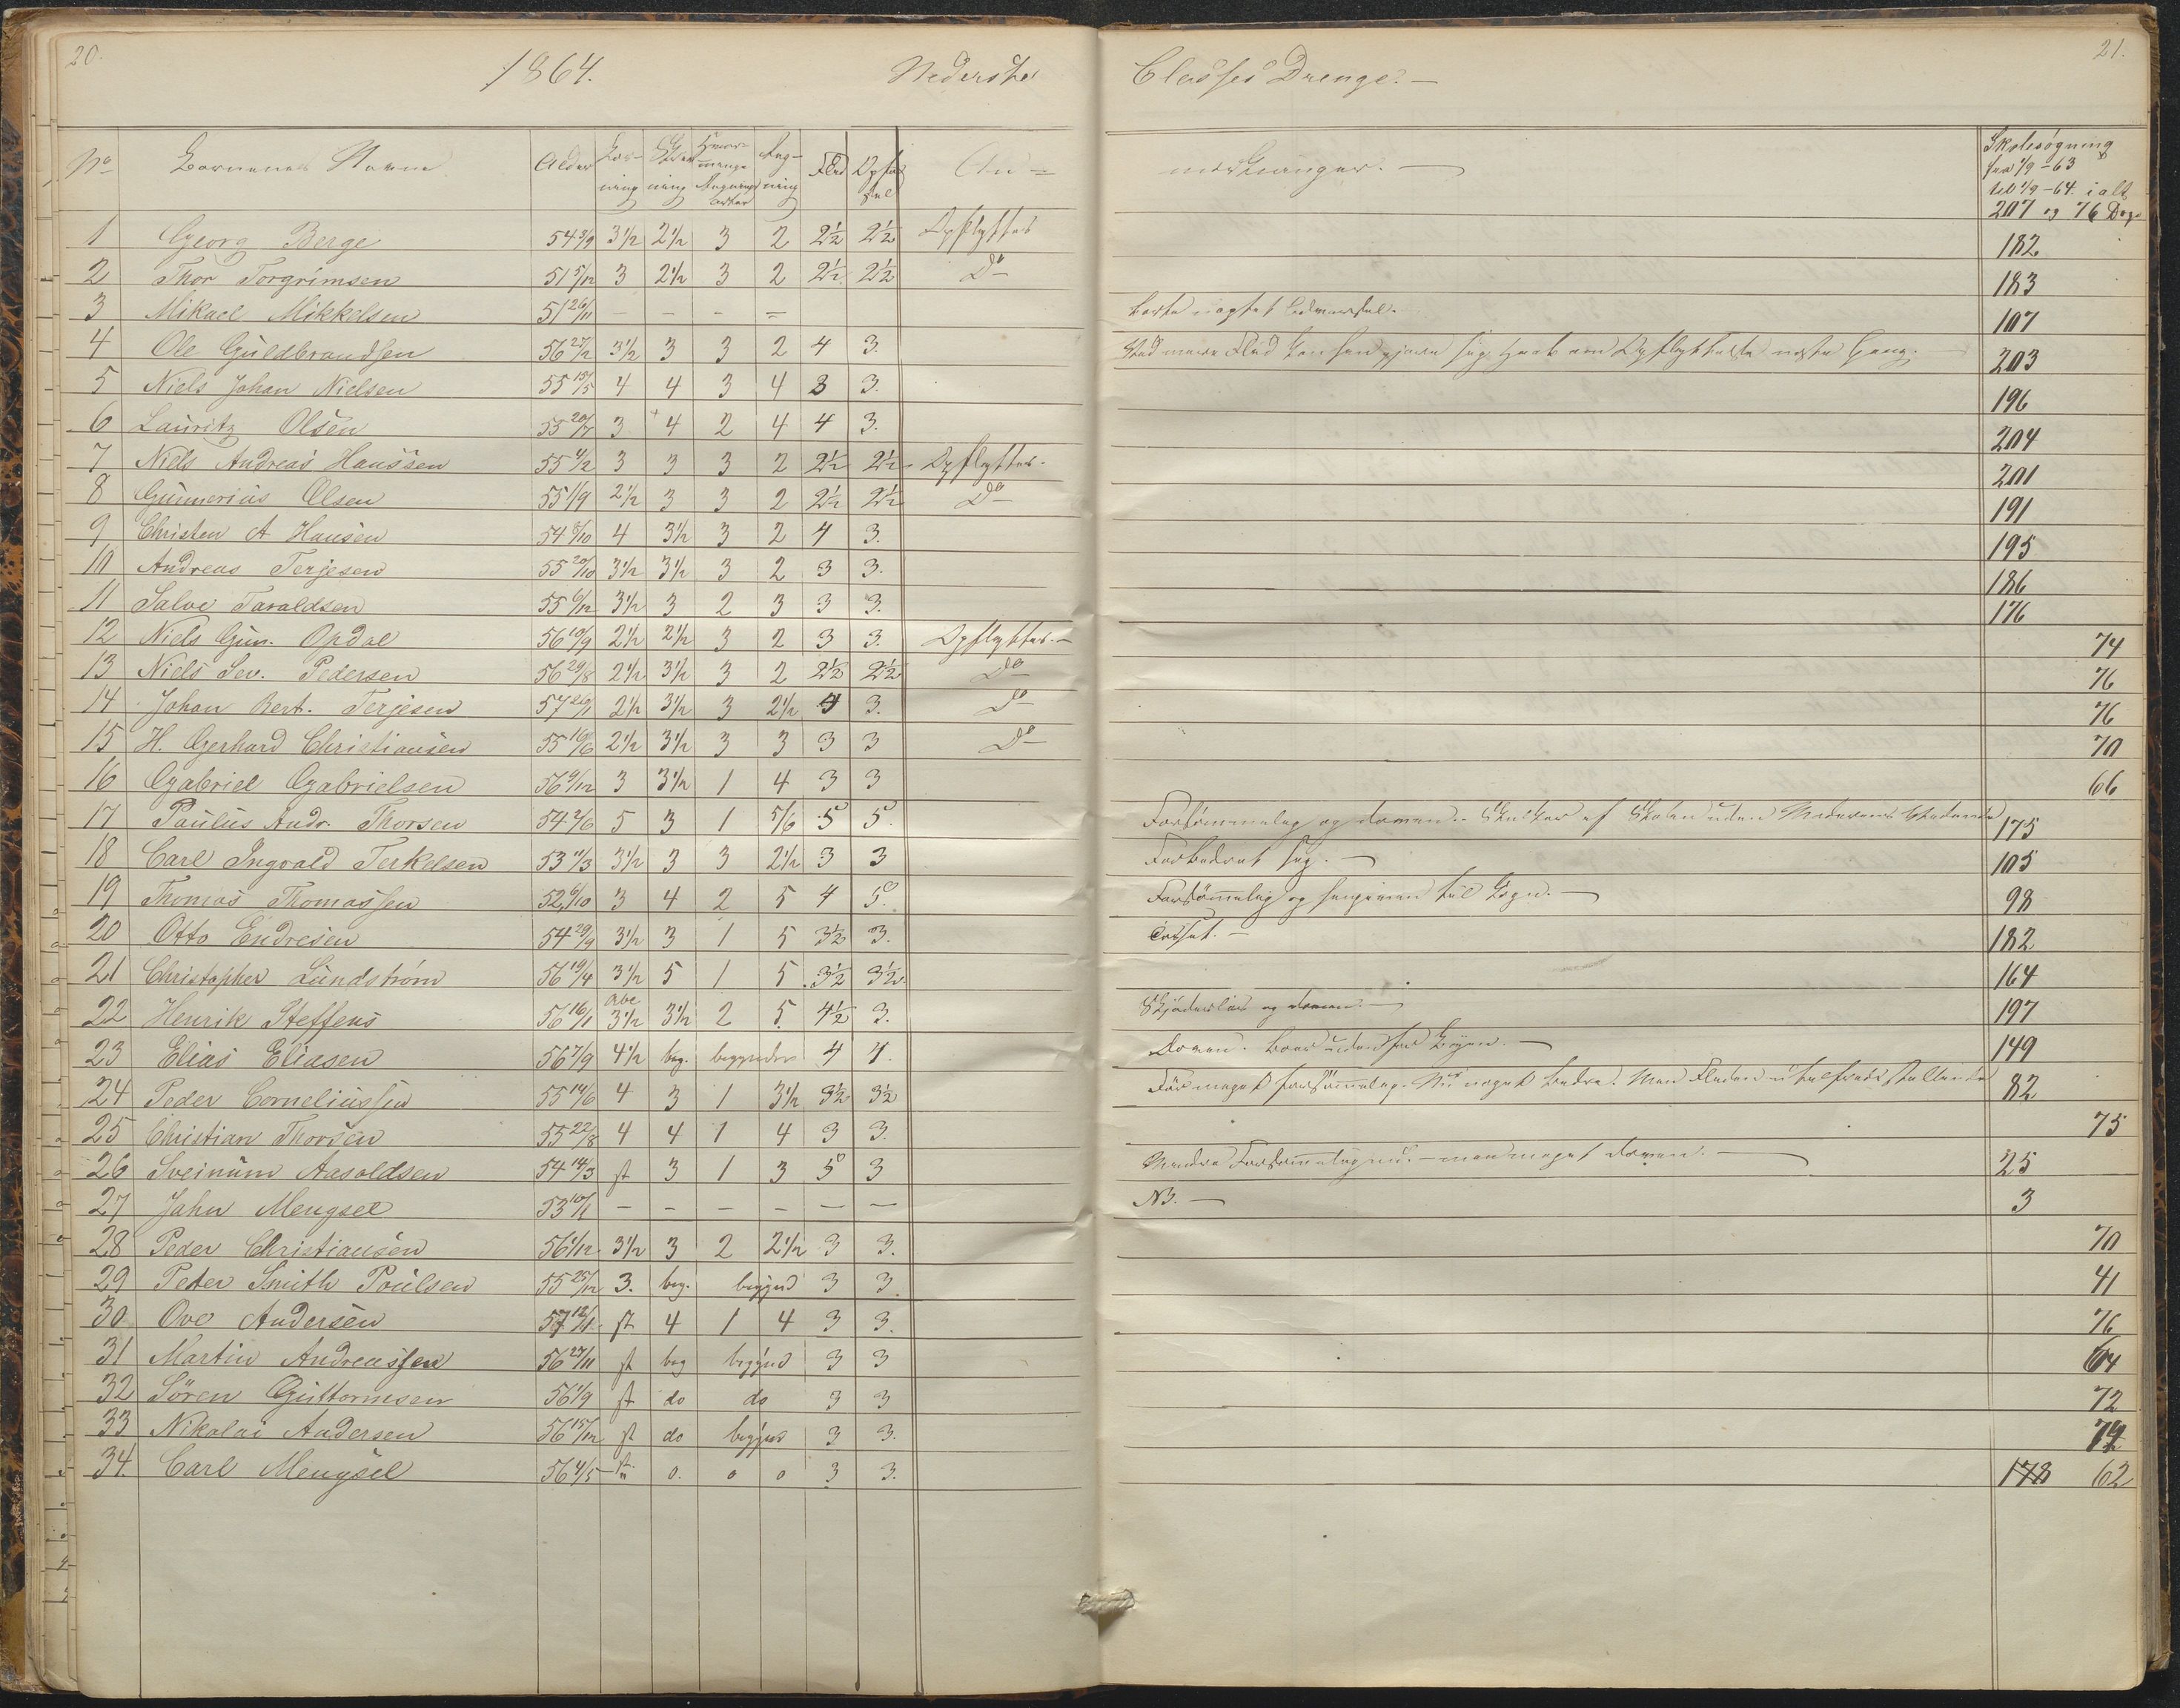 20.
21.
1864.
Nederste
Classes Drenge. —
No
Børnenes Navn
Alder
Læs-
ning
Skriv
ning
Hvor
mange
Regnings
arter
Reg-
ning
Flid
Opfør
sel
An =
mærkninger. —
Skolesøgning
fra 1/9 - 63
til 1/9 - 64. i alt
207 og 76 Dage
1 Georg Berge 54 3/9 3½ 2½ 3 2 2½ 2½ Opflyttes 182
2 Thor Torgrimsen 51 5/12 3 2½ 3 2 2½ 2½ Do 183
3 Mikael Mikkelsen 51 26/11 – – – = 107
4 Ole Guldbrandsen 56 27/2 3½ 3 3 2 4 3. Ved mere Flid kan han gjøre sig Haab om Opflyttelse næste Gang. 203
5 Niels Johan Nielsen 55 15/5 4 4 3 4 3 3. 196
6 Lauritz Olsen 55 20/7 3 + 4 2 4 4 3. 204
7 Niels Andreas Hanssen 55 4/2 3 3 3 2 2½ 2½ Opflyttes. 201
8 Gunnerius Olsen 55 1/9 2½ 3 3 2 2½ 2½ Do 191
9 Christen A Hansen 54 8/10 4 3½ 3 2 4 3. 195
10 Andreas Terjesen 55 20/10 3½ 3½ 3 2 3 3. 186
11 Salve Taraldsen 55 6/12 3½ 3 2 3 3 3. 176
12 Niels Gun. Opdal 56 10/9 2½ 2½ 3 2 3 3. Opflyttes. — 74
13 Niels Sev. Pedersen 56 29/8 2½ 3½ 3 2 2½ 2½ Do 76
14 Johan Bert. Terjesen 57 26/1 2½ 3½ 3 2½ 3 3. Do 76
15 H. Gerhard Christiansen 55 16/6 2½ 3½ 3 3 3 3 Do 70
16 Gabriel Gabrielsen 56 9/12 3 3½ 1 4 3 3 66
17 Paulus Andr. Thorsen 54 2/6 5 3 1 5/6 5 5. Forsømmelig og doven. Skulker af Skolen uden Moderens Vidende 175
18 Carl Ingvald Terkelsen 53 11/3 3½ 3 3 2½ 3 3 Forbedret sig. — 105
19 Thomas Thomassen 52 6/10 3 4 2 5 4 5. Forsømmelig og hengiven til Løgn. — 98
20 Otto Endresen 54 29/9 3½ 3 1 5 3½ 3. Tosset. — 182
21 Christopher Lundstrøm 56 19/4 3½ 5 1 5 3½ 3½ 164
22 Henrik Steffens 56 16/1 abc 3½ 3½ 2 5 4½ 3. Skjødesløs og doven — 197
23 Elias Eliasen 56 7/9 4½ beg. begynder 4 4. Doven. Boer udenfor Byen. — 149
24 Peder Corneliussen 55 14/6 4 3 1 3½ 3½ 3½ Før meget forsømmelig. Nu noget bedre. Men Fliden utilfredsstillende 82
25 Christian Thorsen 55 22/8 4 4 1 4 3 3. 75
26 Sveinum Aasoldsen 54 14/3 st 3 1 3 5 3 Mindre Forsømmelig nu. — men meget doven. — 25
27 Jahn Mengsel 53 10/1 – – – – – – NB. — 3
28 Peder Christiansen 56 1/12 3½ 3 2 2½ 3 3. 70
29 Peter Smith Poulsen 55 25/12 3. beg. begynd 3 3. 41
30 Ove Andersen 57 12/1 st 4 1 4 3 3. 76
31 Martin Andreassen 56 27/11 st beg begynd 3 3 64
32 Søren Guttormsen 56 1/9 st do do 3 3 72
33 Nikolai Andersen 56 15/12 st do begynd 3 3. 74
34. Carl Mengsel 56 4/5 st. 0. 0 0 3 3. 178 62